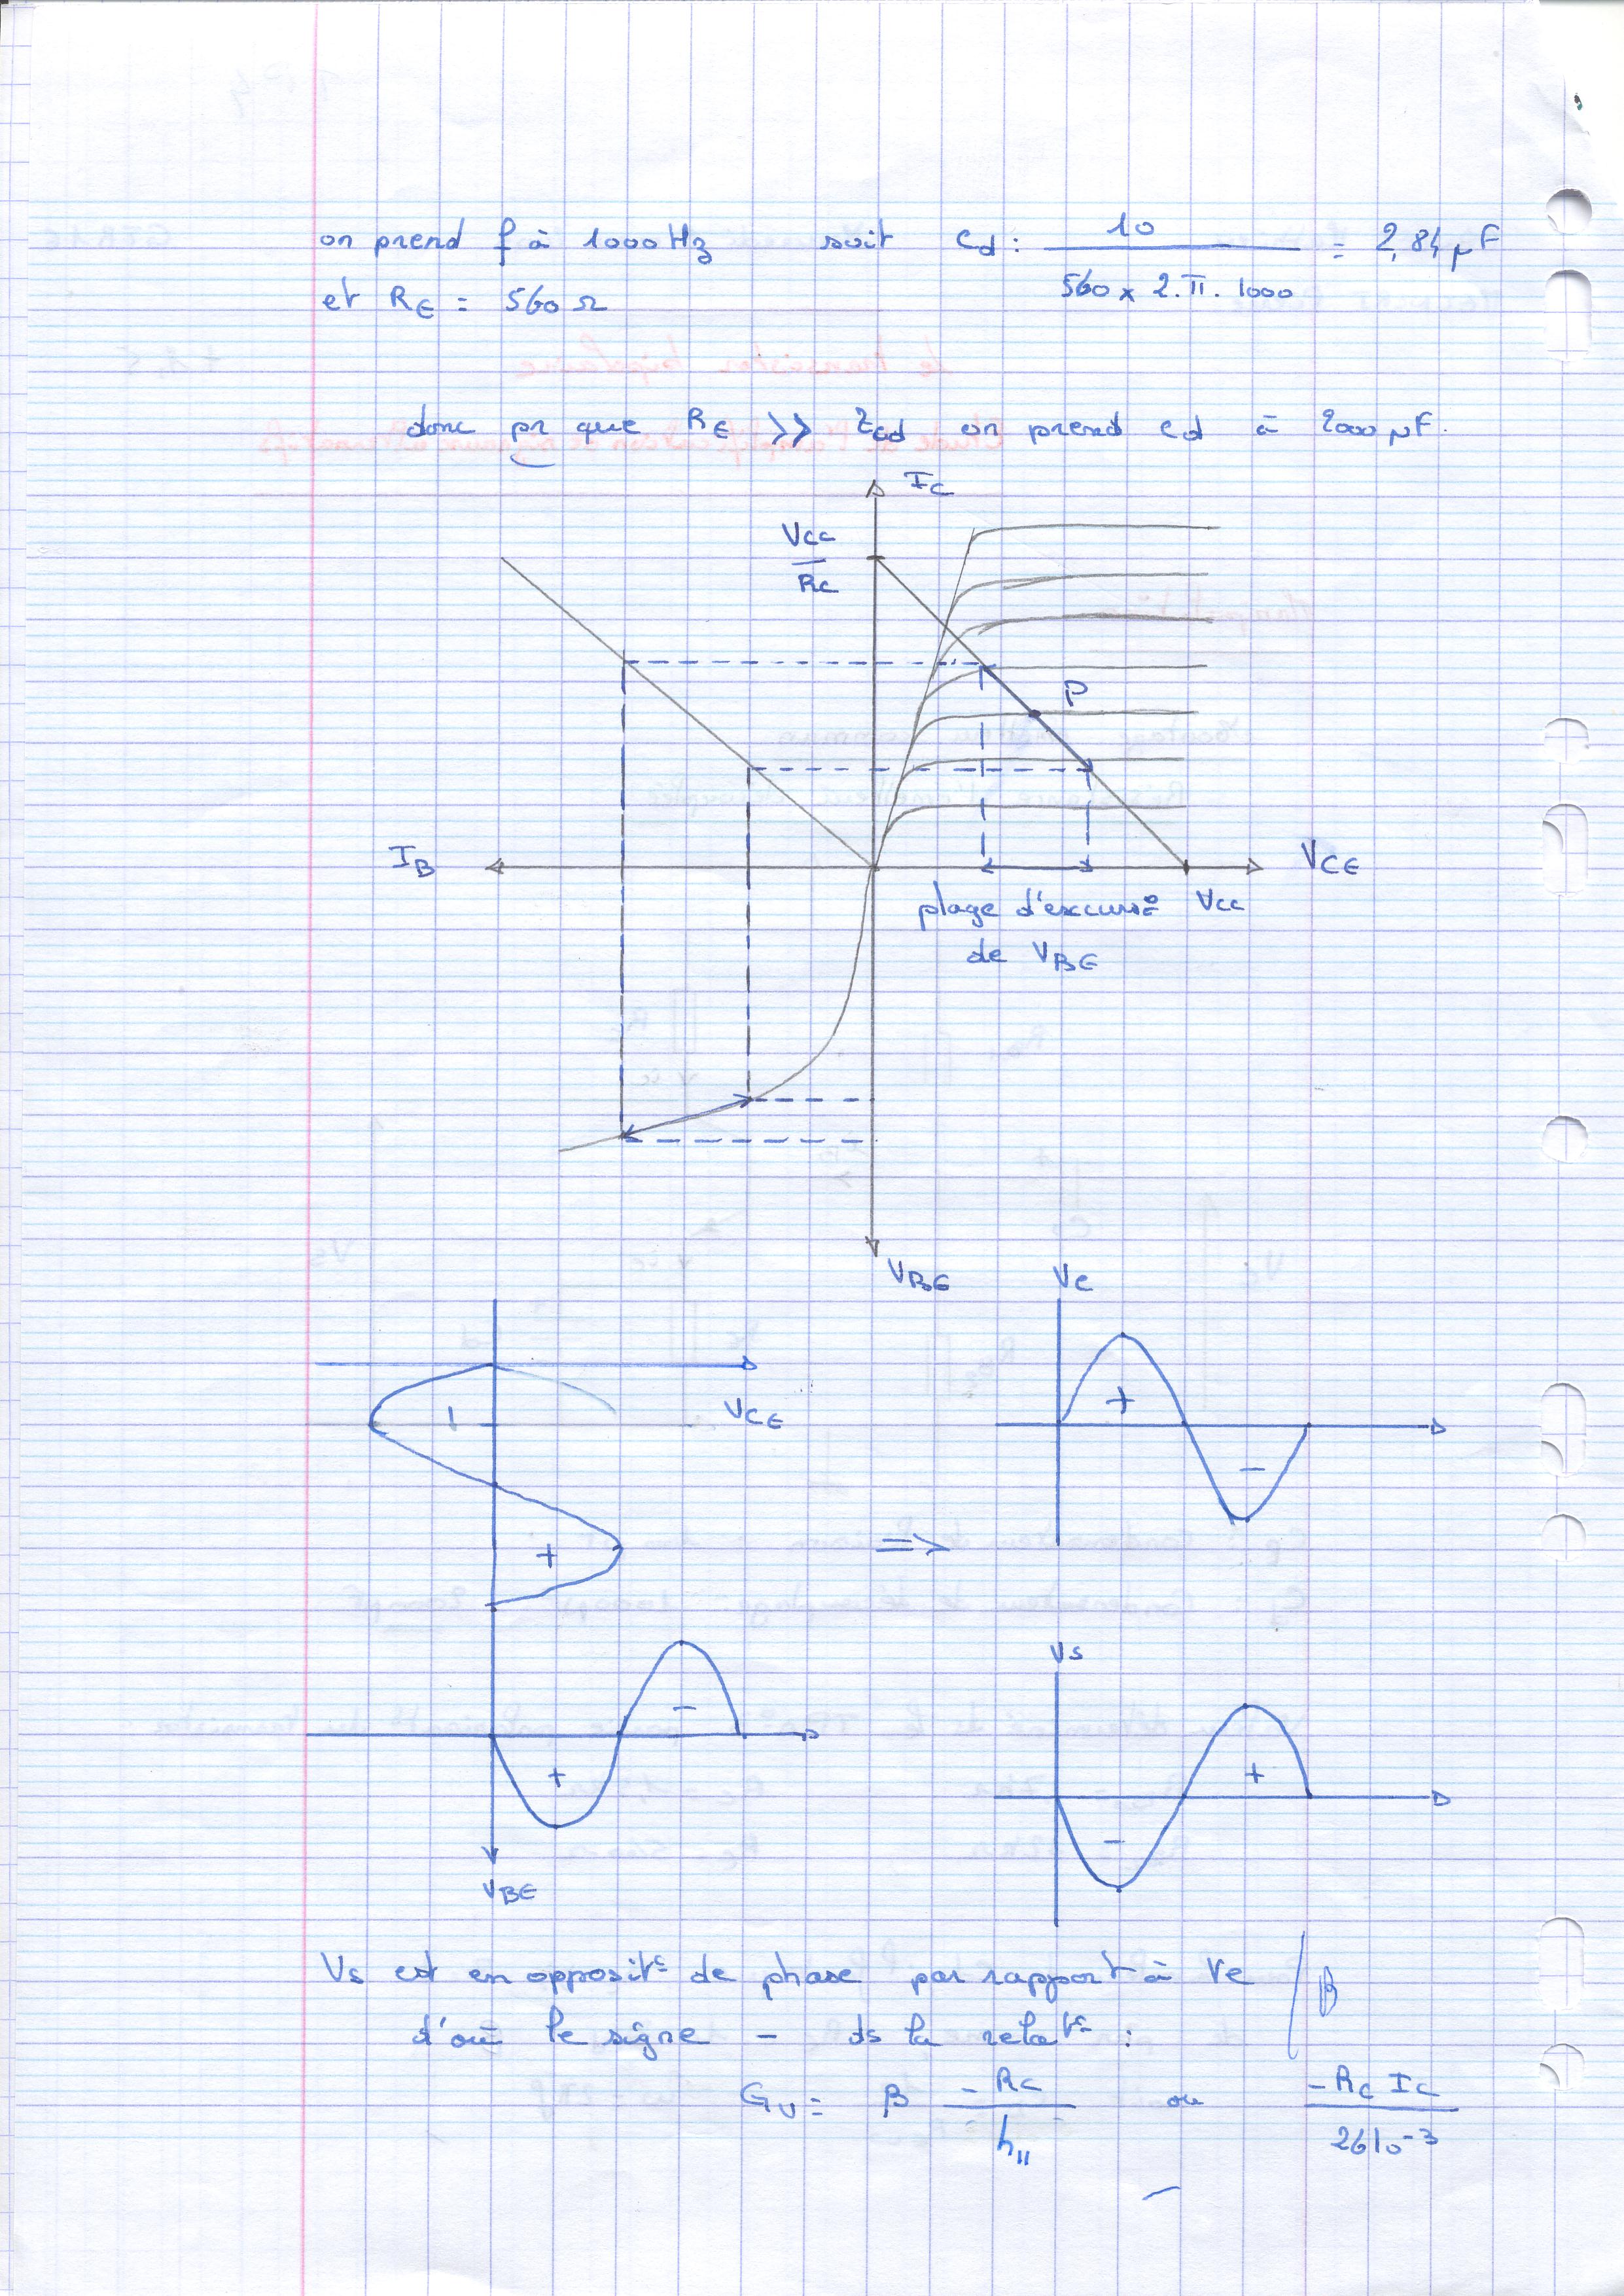 on prend f à 1000 Hz soit Cd : 10 / 560 x 2.π.1000 = 2,84 µF
et RE = 560 Ω
donc pr que RE >> ZCd on prend Cd à 2000 µF.
IC
Vcc / Rc
P
IB
VCE
plage d'excursº Vcc
de VBE
VBE
Ve
VCE
+
-
+
=>
Vs
-
+
+
-
VBE
Vs est en oppositº de phase par rapport à Ve / β
d'où le signe - ds la relatº :
Gv = β -Rc / h11 ou -Rc Ic / 26 10⁻³